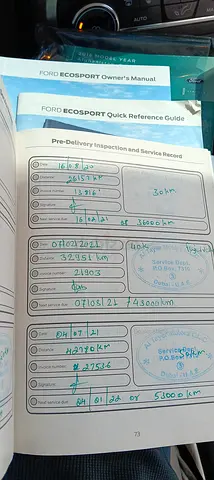 2019 MODEL YEAR
FORD ECOSPORT Owner's Manual
FORD ECOSPORT Quick Reference Guide
Pre-Delivery Inspection and Service Record
Date 16/08/20
Distance 26157 km
Invoice number 13816
30km
Signature
Next service due 16/02/21 or 36000km
Date 07/02/2021
40k
Distance 32951 km
Invoice number 21903
Service Dept.
P.O.Box
Signature
Doha
Next service due 07/03/21 / 43000km
Date 04/07/21
Distance 42770km
Service Dept.
Invoice number 27536
P.O.Box
Signature
Next service due 04 01 22 or 53000km
73